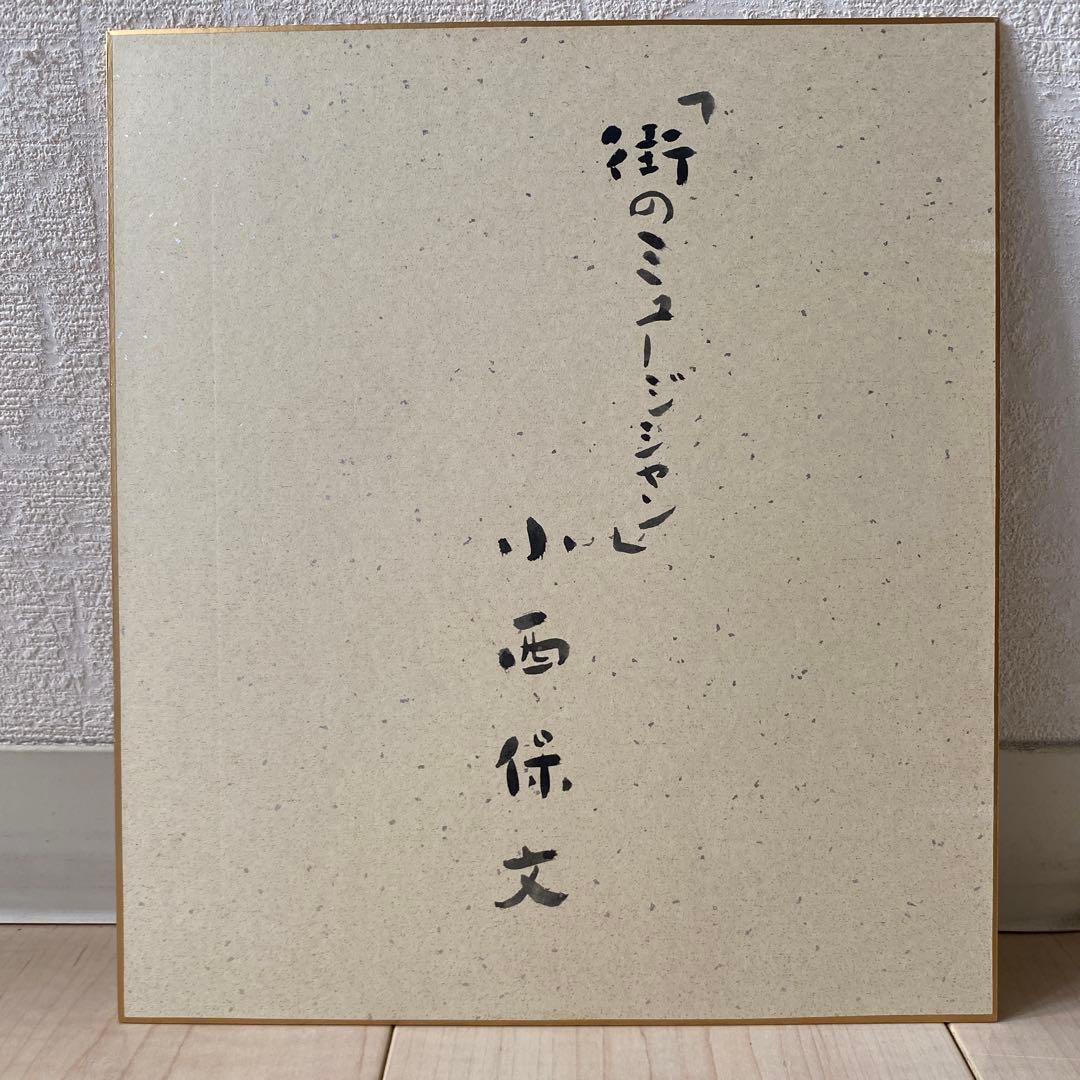 「街のミュージシャン」
小西保文